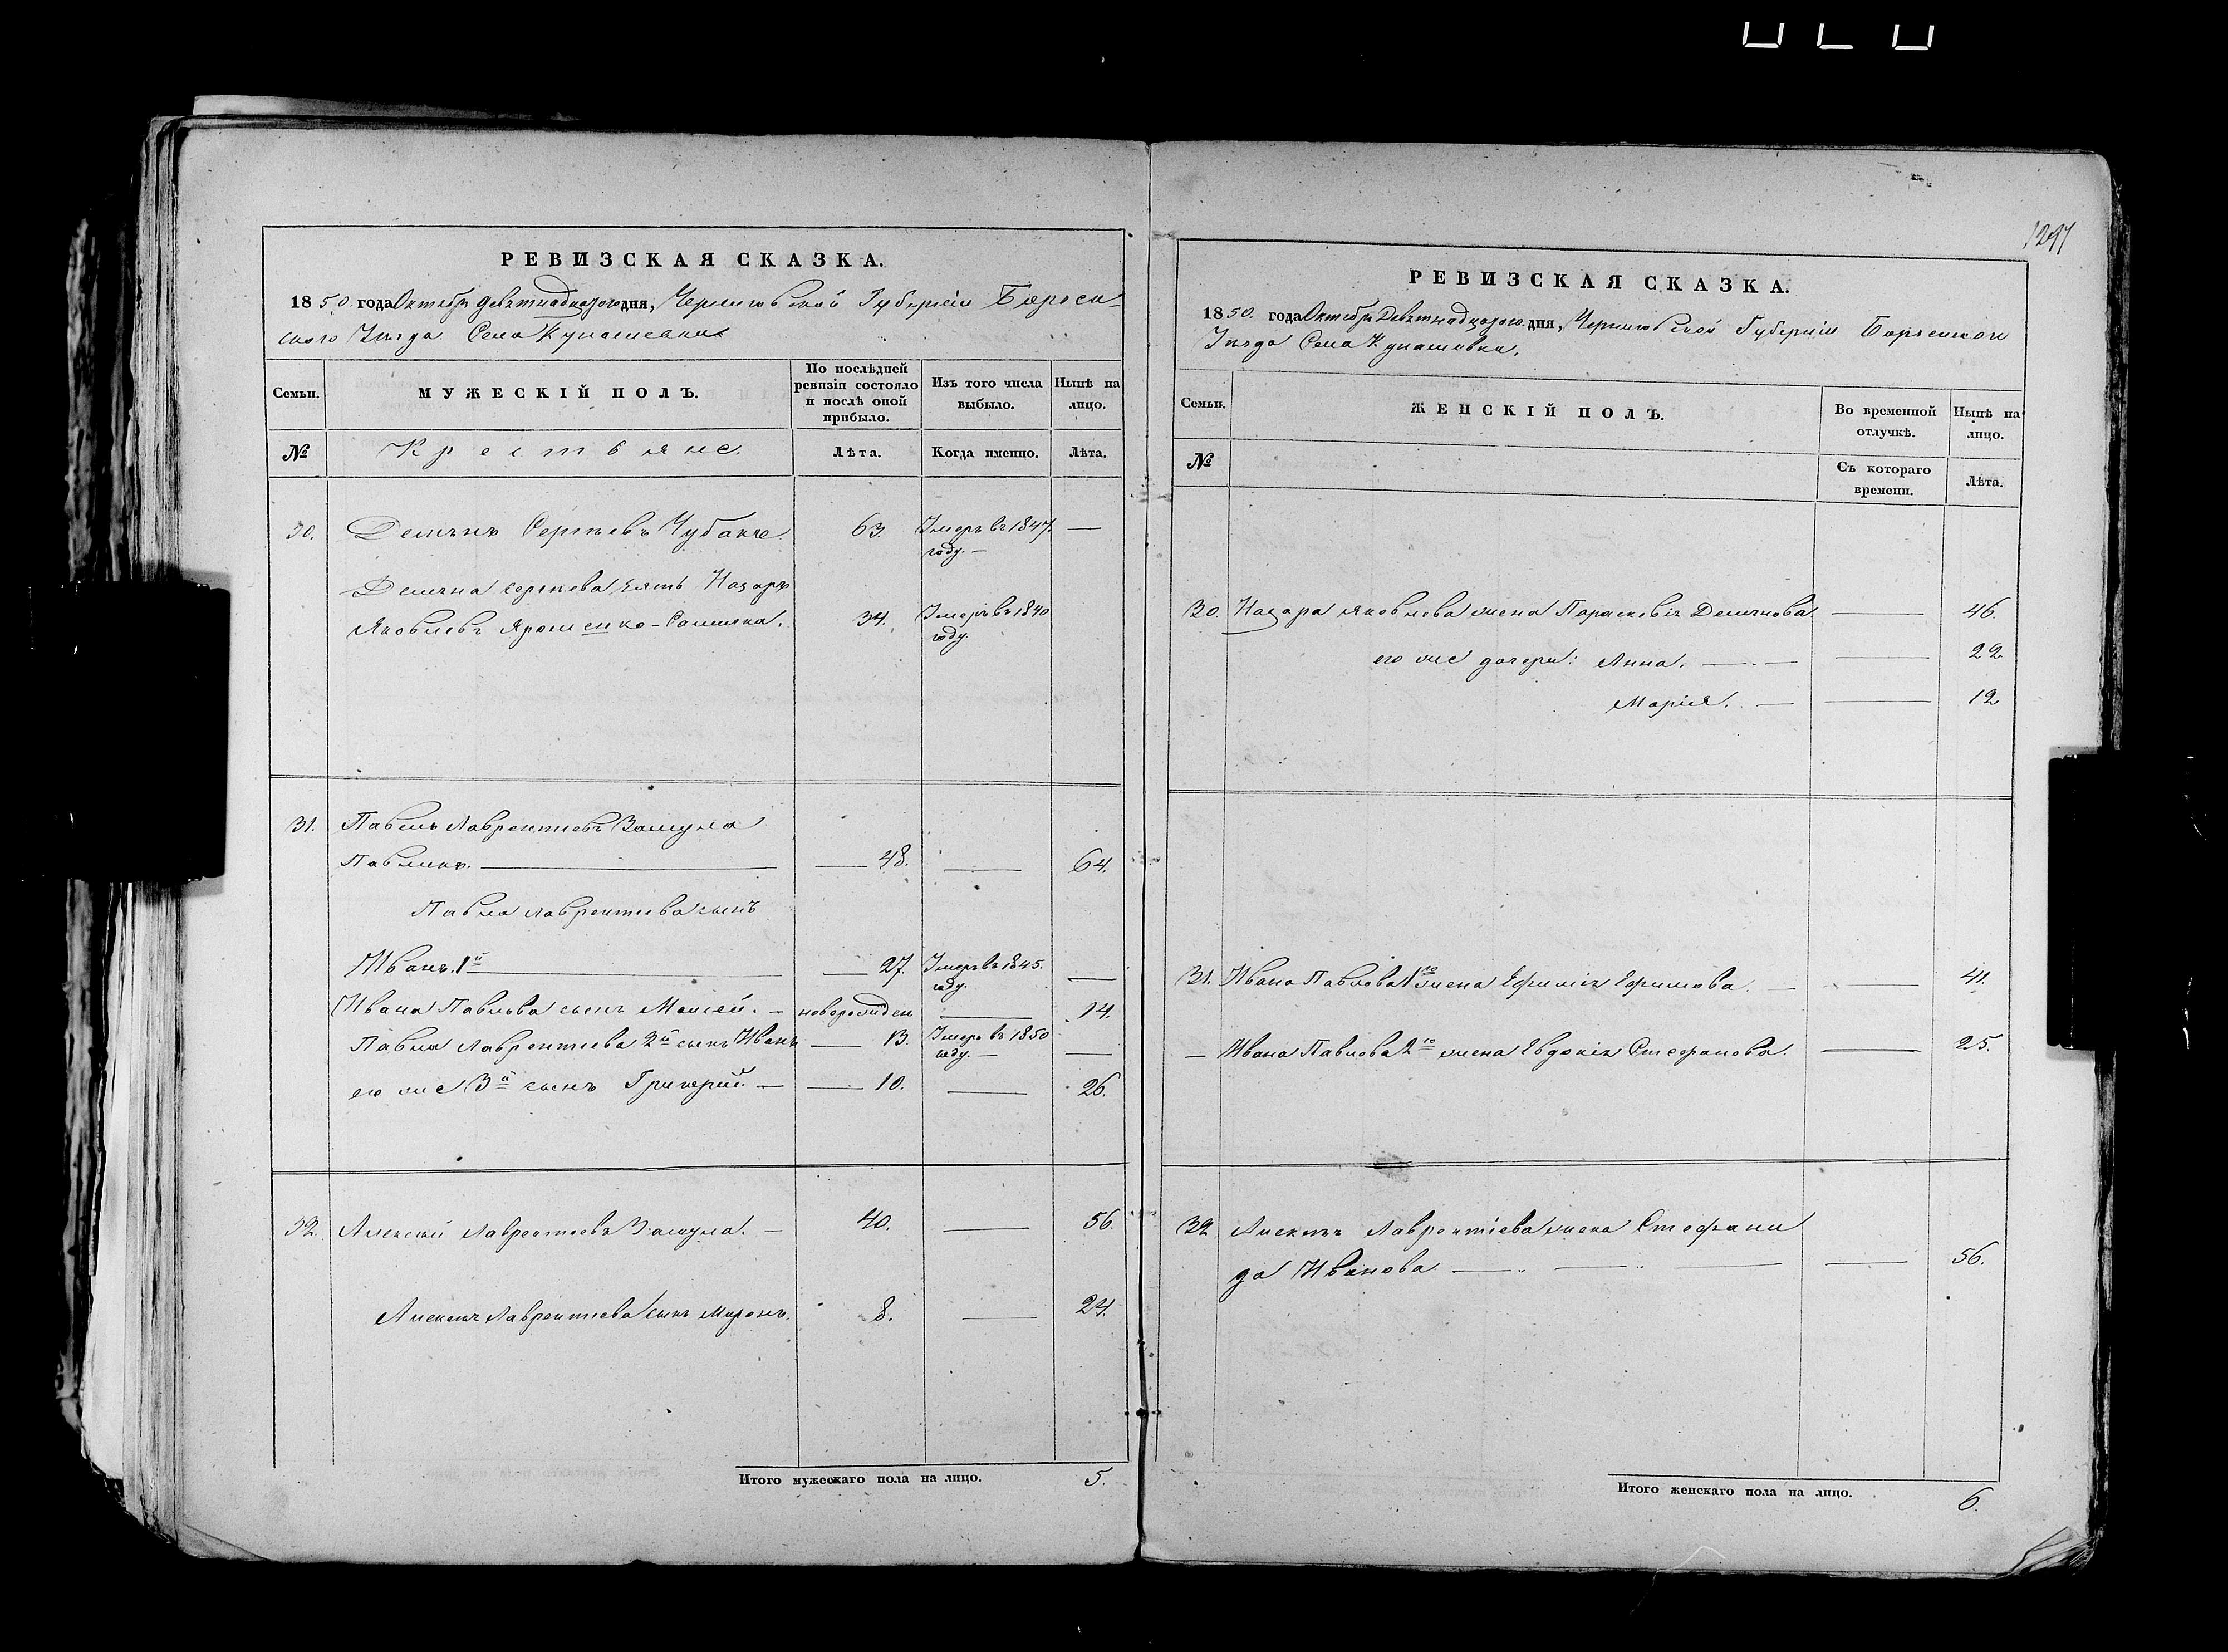 РЕВИЗСКАЯ СКАЗКА.
1850 года Октября девятнадцатого дня, Черниговской Губернии Борзен-
ского Уезда Села Купашевки
Семьи.
МУЖЕСКІЙ ПОЛЪ.
По послѣдней ревизіи состояло и послѣ оной прибыло.
Изъ того числа выбыло.
Нынѣ на лицо.
№
Крестьяне.
Лѣта.
Когда именно.
Лѣта.
30. Демянъ Сергѣевъ 63. Умеръ въ 1847
году. —
Демяна Сергѣева зять Назаръ
Яковлевъ Ярошенко 34. Умеръ въ 1840
году.
31. Павелъ Лаврентіевъ
Павликъ. — 48. — 64.
Павла Лаврентіева сынъ
Иванъ 1й — 27. Умеръ въ 1845.
году. —
Ивана Павлова сынъ Моисей. — новорожден — 14.
Павла Лаврентіева 2й сынъ Иванъ — 13. Умеръ въ 1850
году. —
его же 3й сынъ Григорій. — 10. — 26.
32. Алексѣй Лаврентіевъ — 40. — 56.
Алексѣя Лаврентіева сынъ Миронъ. 8. — 24.
Итого мужескаго пола на лицо. 5.
1297
РЕВИЗСКАЯ СКАЗКА.
1850. года Октября Девятнадцатого дня, Черниговской Губерніи Борзенскои
Уезда Села Купашовки.
Семьи.
ЖЕНСКІЙ ПОЛЪ.
Во временной отлучкѣ.
Нынѣ на лицо.
№
Съ котораго времени.
Лѣта.
30. Назара Яковлева жена Параскевія Демянова — 46.
его же дочери: Анна. — — 22
Марія. — — 12
31. Ивана Павлова 1го жена Ефимія Ефимова. — — 41.
— Ивана Павлова 2го жена Евдокія Стефанова. — 25.
32 Алексѣя Лаврентіева жена Стефани
да Иванова — — — — 56.
Итого женскаго пола на лицо. 6.